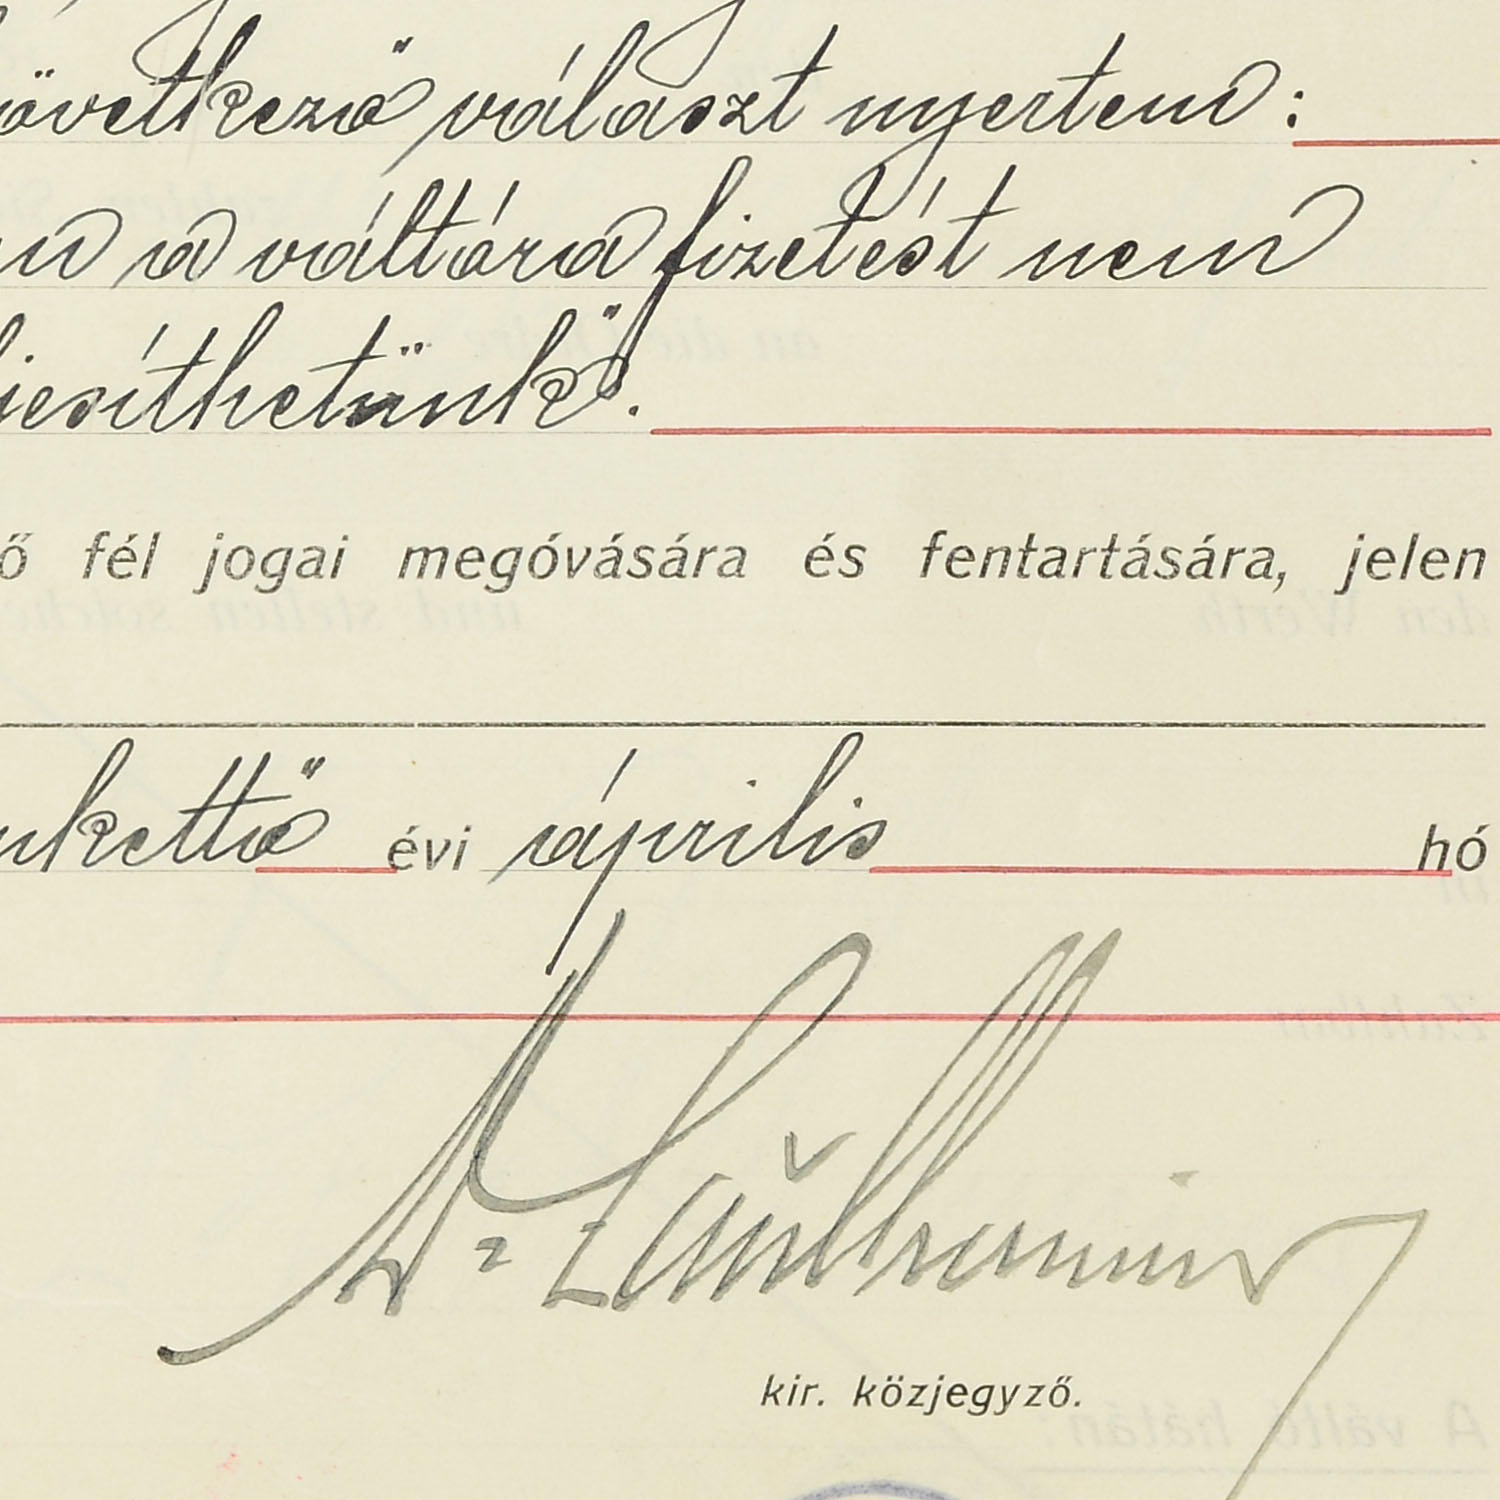 következő választ nyertem:
a váltóra fizetést nem
ljesíthetünk".
ő fél jogai megóvására és fentartására, jelen
nkettő évi április hó
Dr
kir. közjegyző.
A váltó hátán: